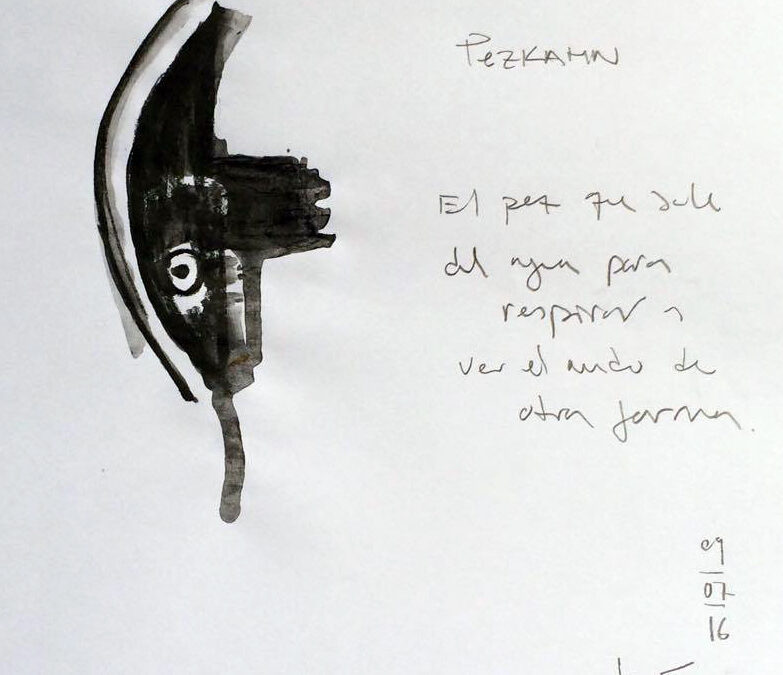 PezKAHN
El pez que sale
del agua para
respirar a
ver el mundo de
otra forma.
09
07
16